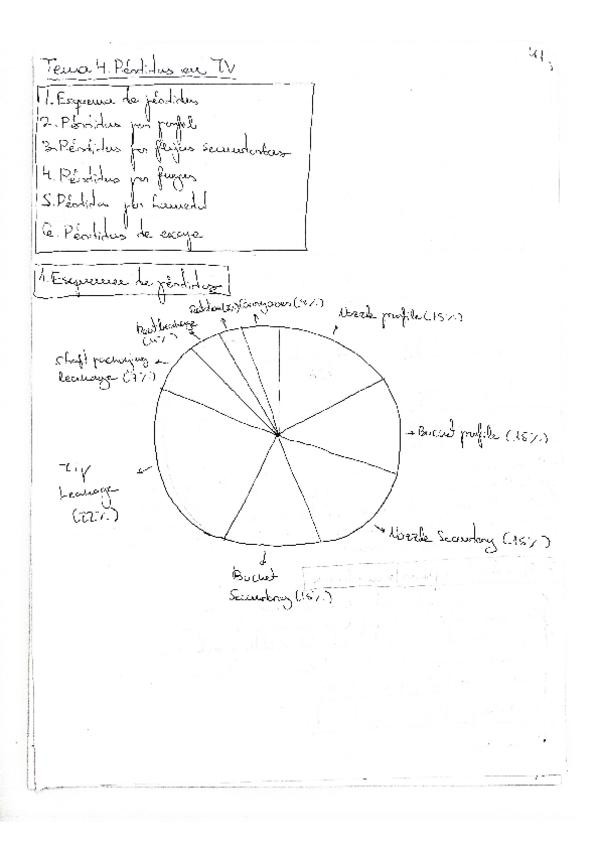 Tema 4. Pérdidas en TV
1. Esquema de pérdidas
2. Pérdidas por perfil
3. Pérdidas por flujos secundarios
4. Pérdidas por fugas
5. Pérdidas por humedad
6. Pérdidas de escape
1. Esquema de pérdidas
Nozzle profile (15%)
Bucket profile (15%)
Nozzle Secondary (15%)
Bucket
Secondary (15%)
Tip
Leakage
(22%)
Shaft packing
leakage (7%)
Root Leakage
(4%)
Rotation (3%)
Carryover (4%)